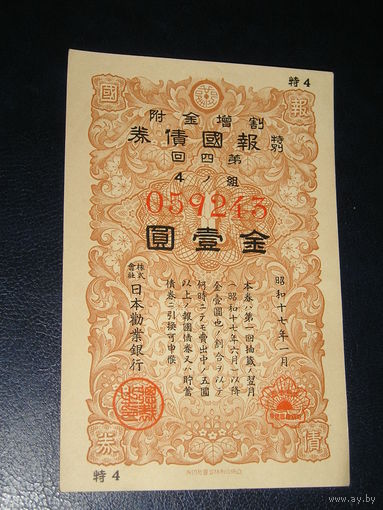 特4
國 報
割増金附
特別 報國債券
第四回
組ノ4
059243
金壹圓
昭和十七年一月
本券ハ第一回抽籤ノ翌月
(昭和十七年六月)以降
金壹圓也ノ割合ヲ以テ
何時ニテモ賣出中ノ五圓
以上ノ報國債券又ハ貯蓄
債券ニ引換可申候
株式會社 日本勸業銀行
券 債
特4
www.ay.by